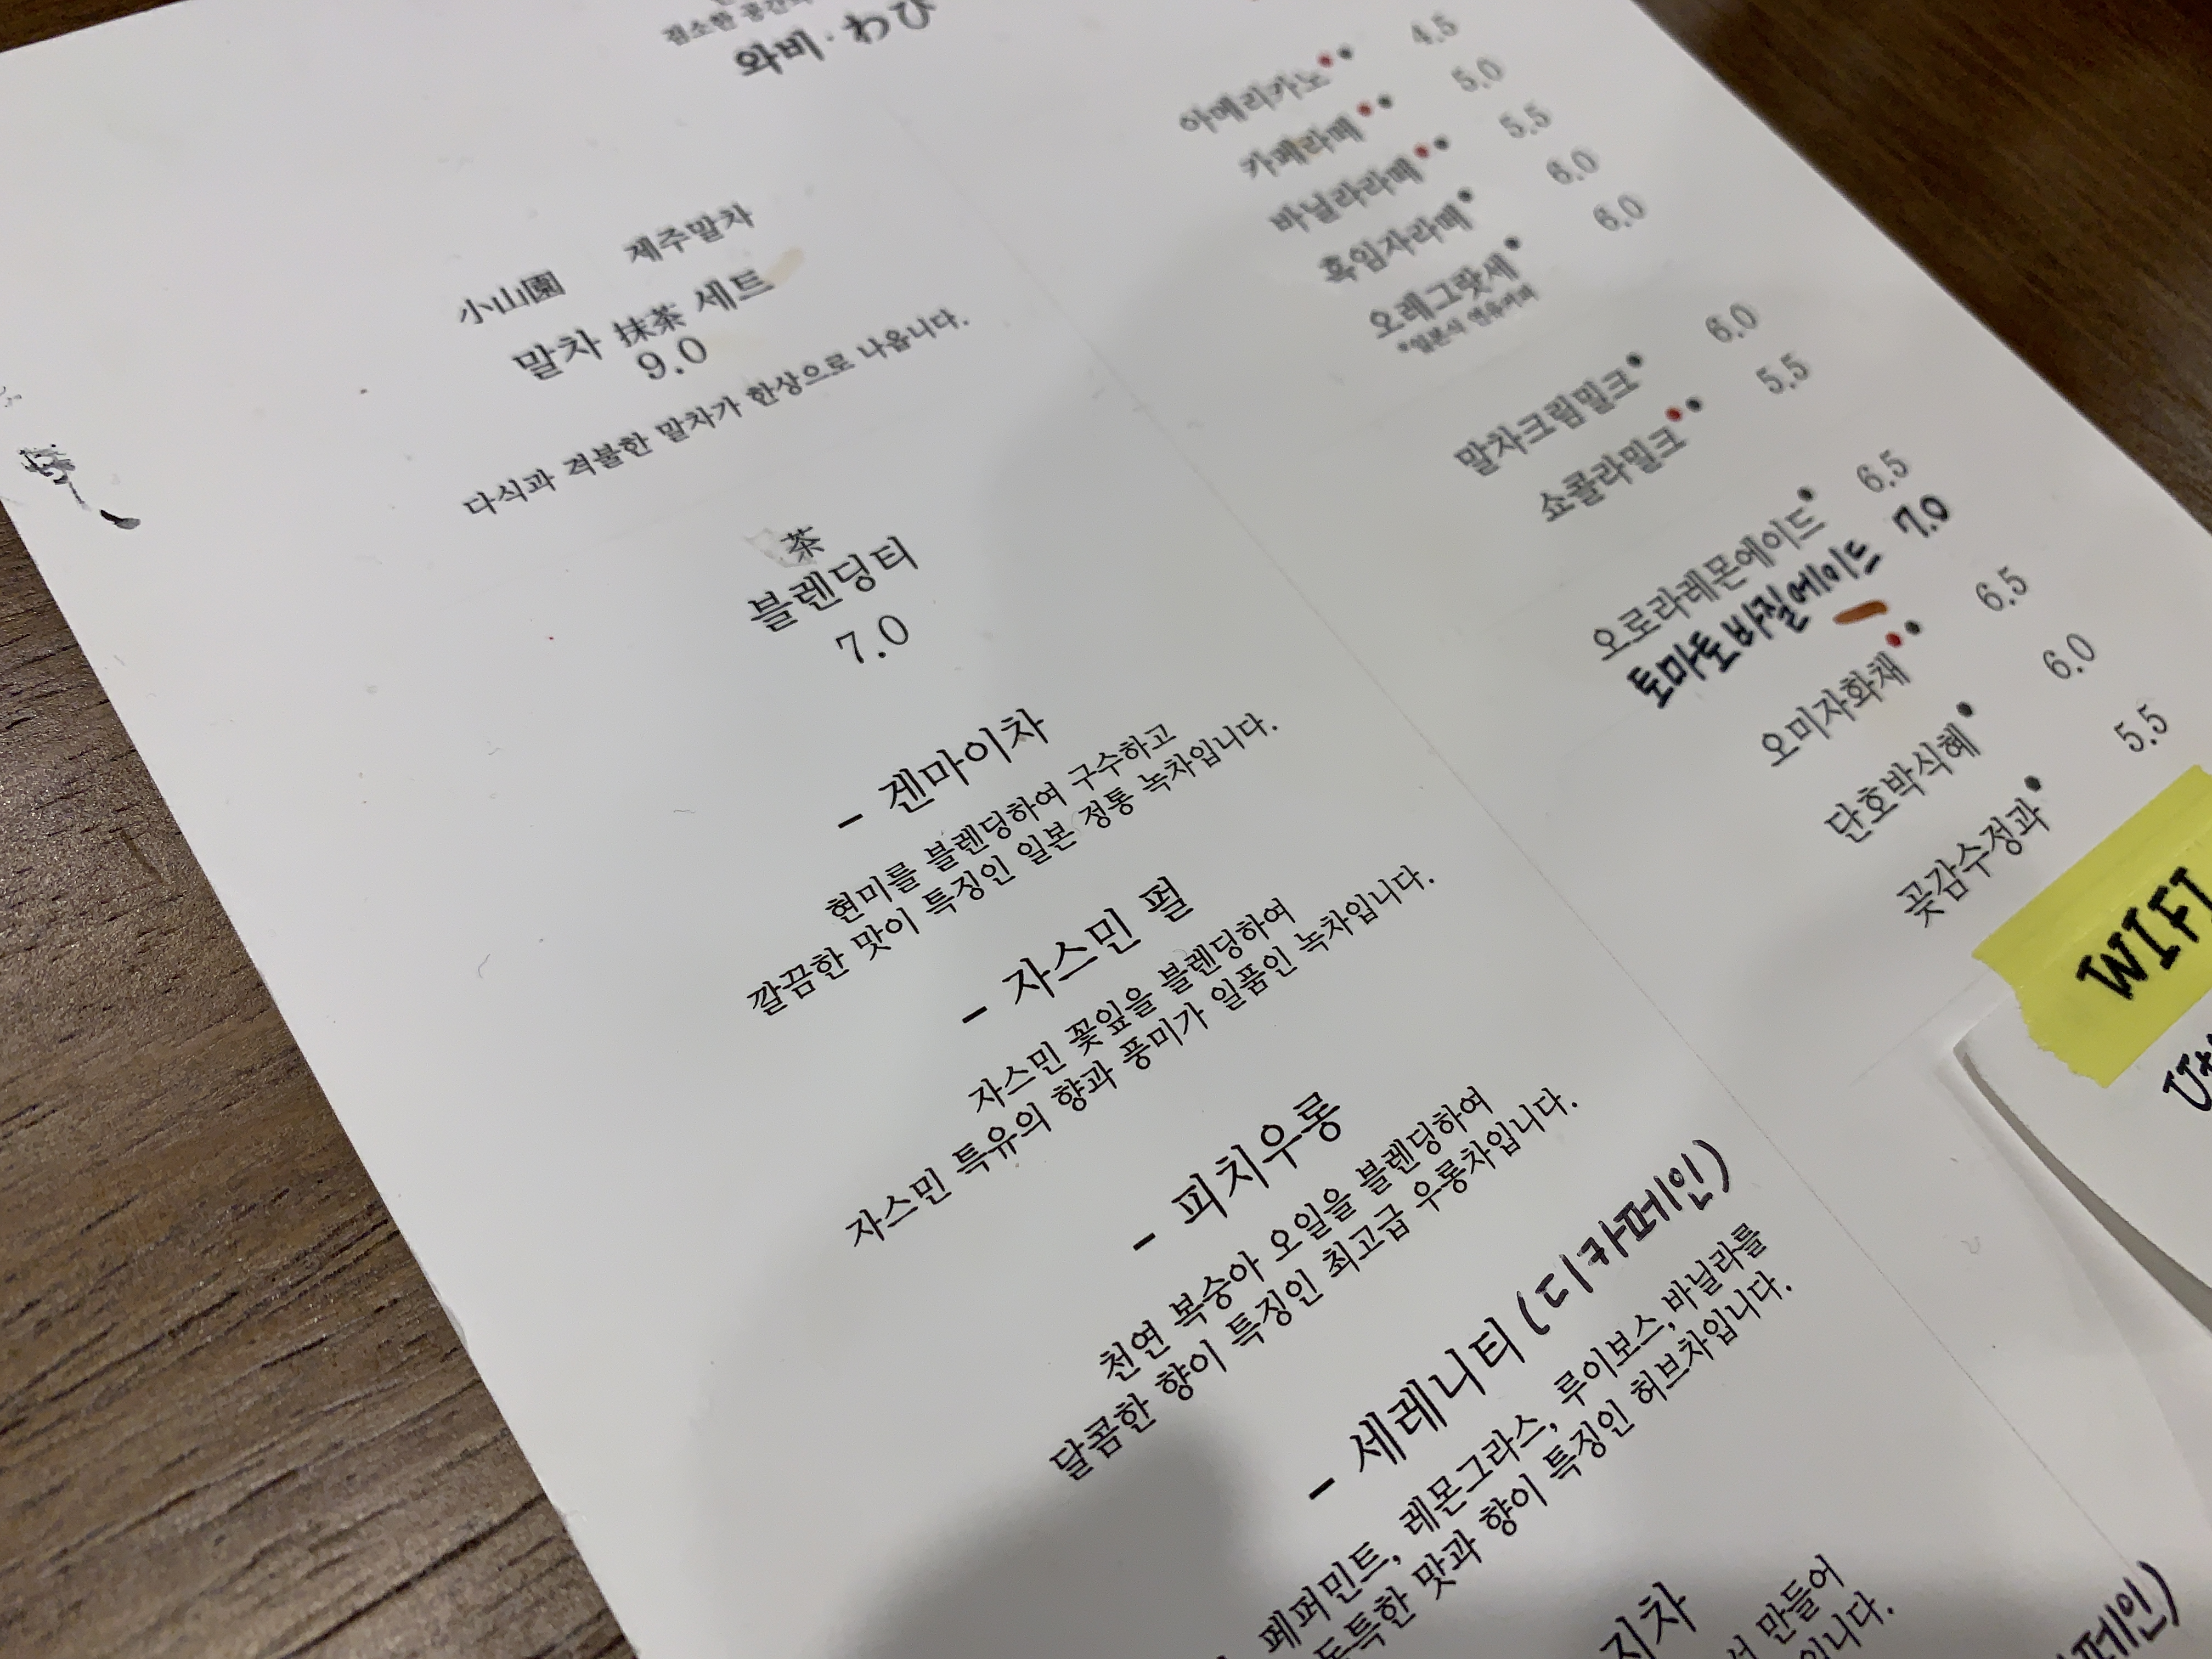 검소한 공간의
와비 · わび
小山園 제주말차
말차 抹茶 세트
9.0
다식과 격불한 말차가 한상으로 나옵니다.
茶
블렌딩티
7.0
- 겐마이차
현미를 블렌딩하여 구수하고
깔끔한 맛이 특징인 일본 정통 녹차입니다.
- 자스민 펄
자스민 꽃잎을 블렌딩하여
자스민 특유의 향과 풍미가 일품인 녹차입니다.
- 피치우롱
천연 복숭아 오일을 블렌딩하여
달콤한 향이 특징인 최고급 우롱차입니다.
- 세레니티 (디카페인)
페퍼민트, 레몬그라스, 루이보스, 바닐라를
독특한 맛과 향이 특징인 허브차입니다.
지차
만들어
입니다.
페인)
아메리카노 4.5
카페라떼 5.0
바닐라라떼 5.5
흑임자라떼 6.0
오레그랏세 6.0
*일본식 연유커피
말차크림밀크 6.0
쇼콜라밀크 5.5
오로라레몬에이드 6.5
토마토바질에이드 7.0
오미자화채 6.5
단호박식혜 6.0
곶감수정과 5.5
WIFI